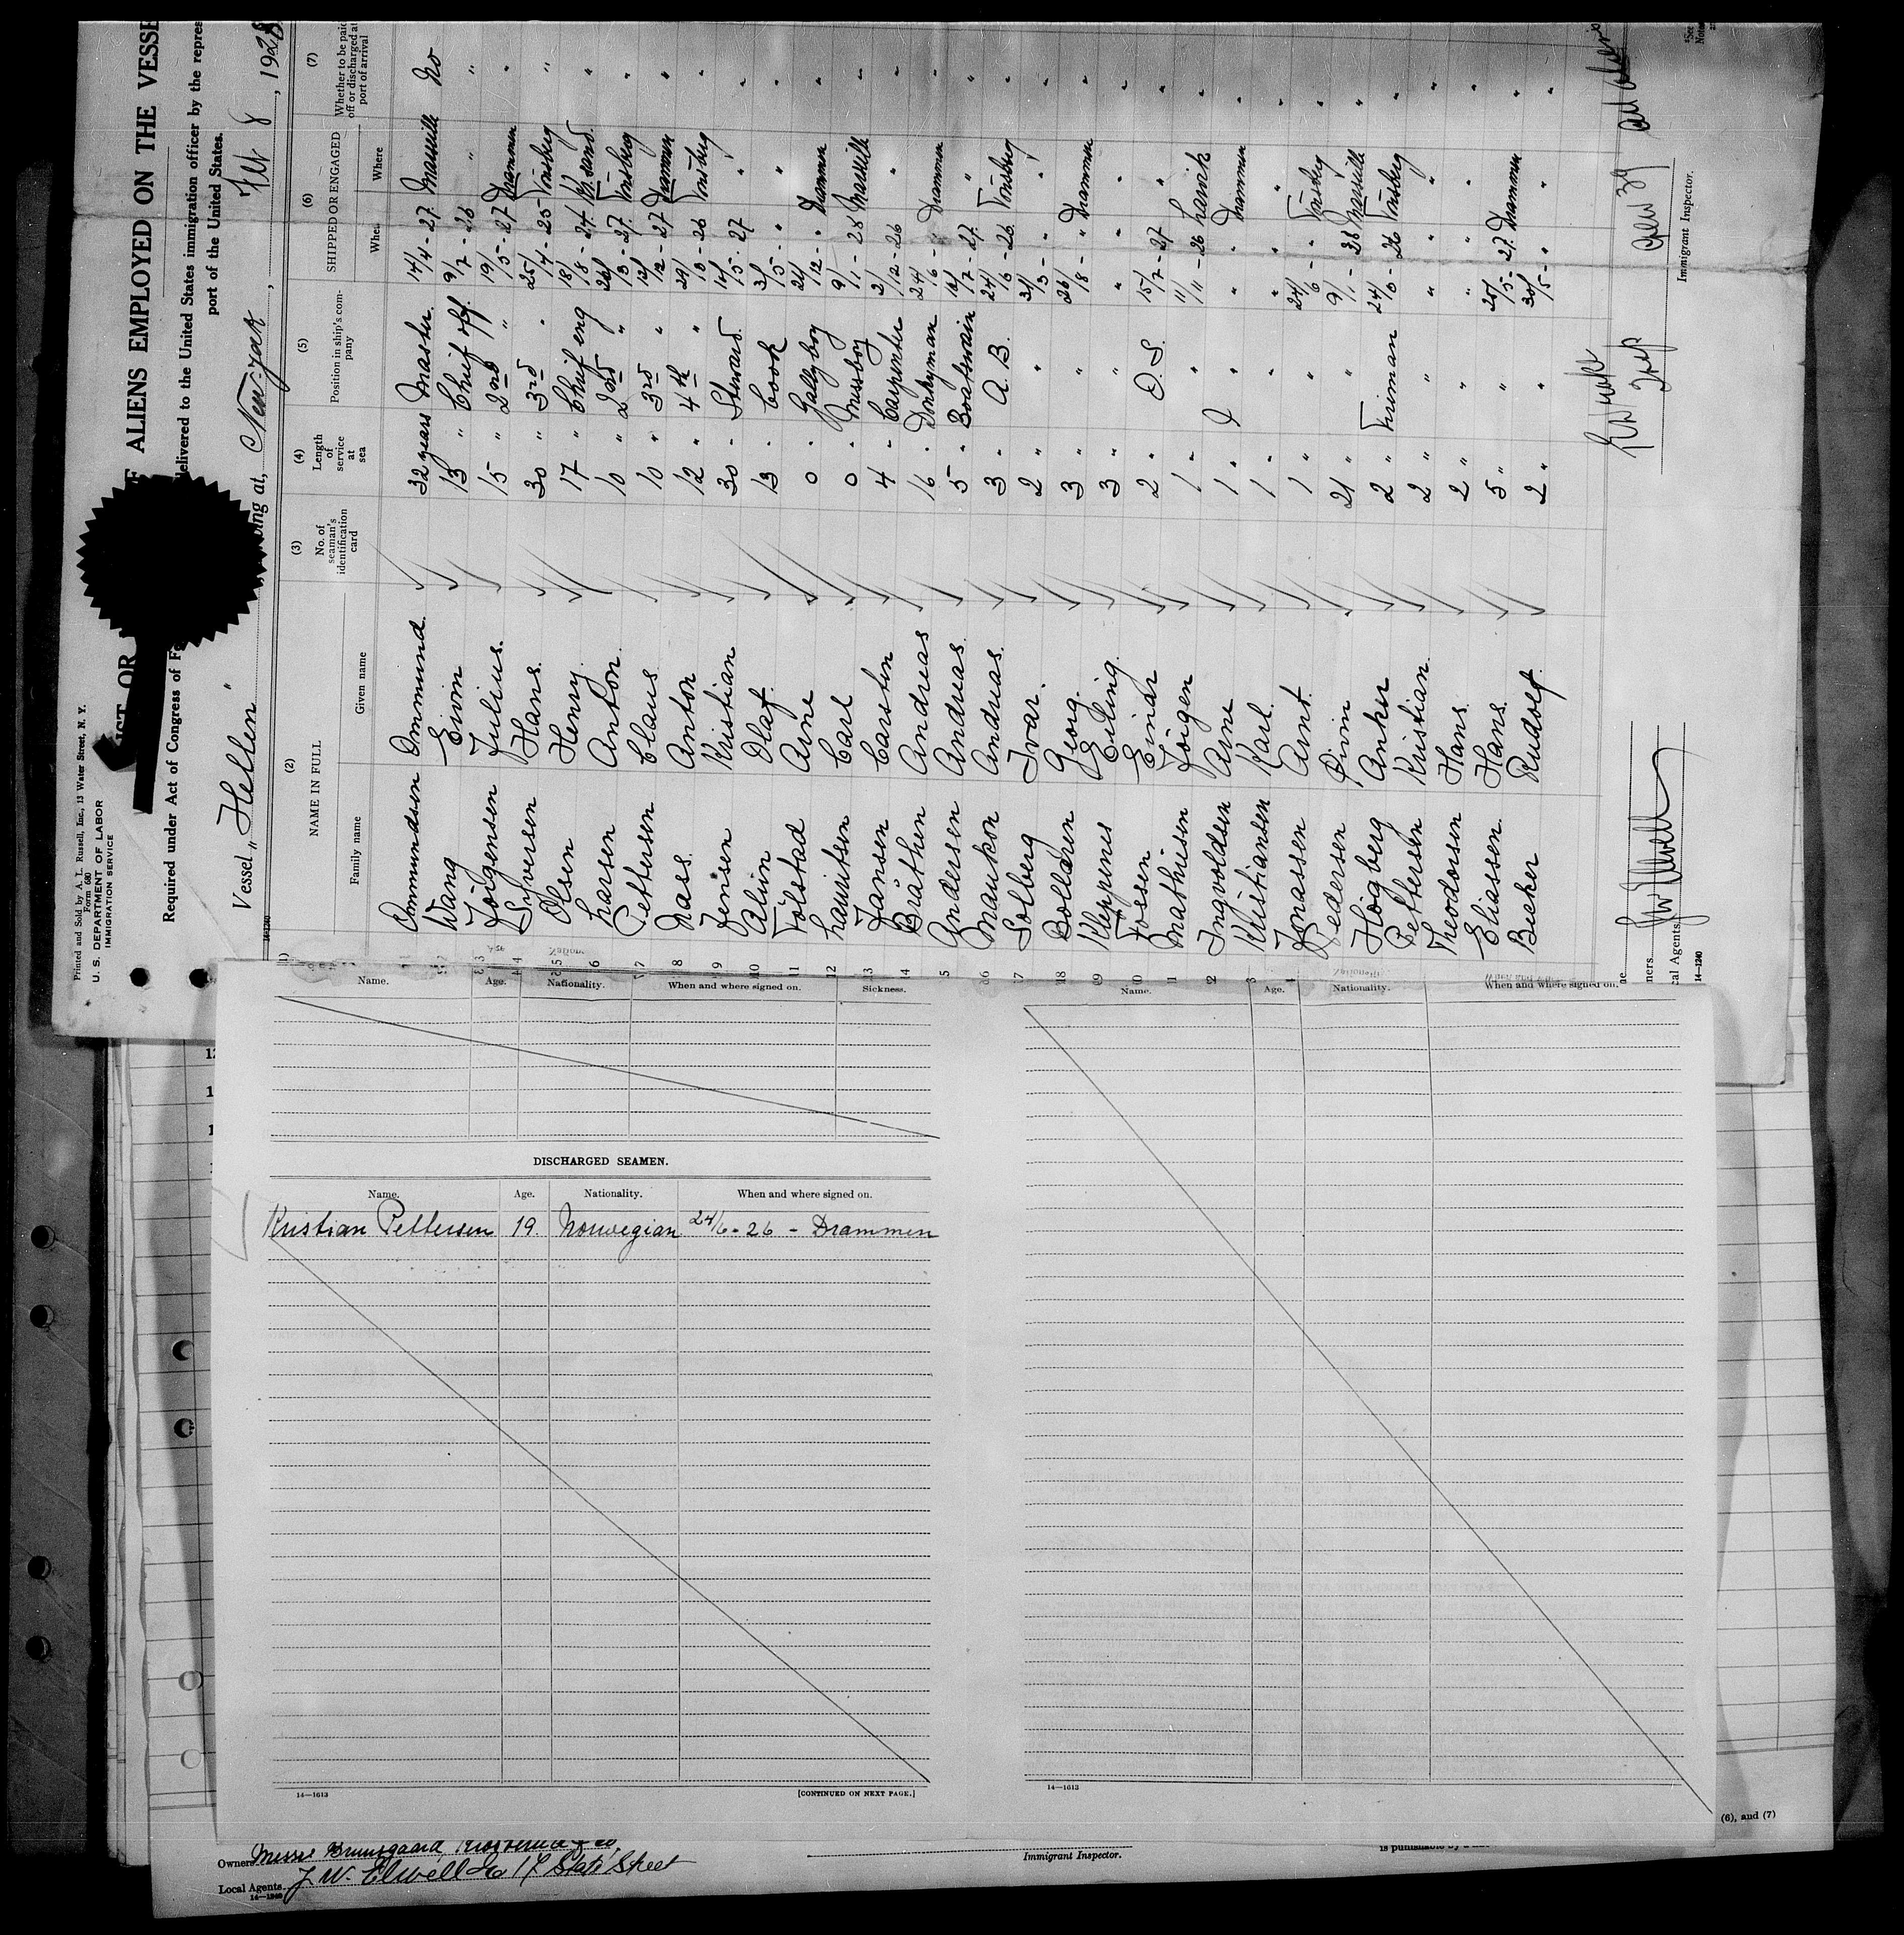 Printed and Sold by A. L. Russell, Inc., 13 Water Street, N. Y.
Form 680
U. S. DEPARTMENT OF LABOR
IMMIGRATION SERVICE
OF ALIENS EMPLOYED ON THE VESSE
Required under Act of Congress of
delivered to the United States immigration officer by the repres
port of the United States.
Vessel "Hellen" at, New-York, Feb 8, 1928
(1) (2) (3) (4) (5) (6) (7)
NAME IN FULL
Family name Given name
No. of seaman's identification card
Length of service at sea
Position in ship's company
SHIPPED OR ENGAGED
When Where
Whether to be paid off or discharged at port of arrival
Ommundsen Ommund 32 years Master 14/4-27 Marseille No
Wang Eivin 13 " Chief off. 9/7-26 " "
Jörgensen Julius. 15 " 2nd " 19/5-27 Drammen "
Syversen Hans. 30 " 3rd " 25/4-25 Tönsberg "
Olsen Henry 17 " Chief eng 18/8-24 Kr.sand. "
Larsen Anton 10 " 2nd " 26/3-27 Tönsberg "
Pettersen Claus 10 " 3rd " 12/12-27 Drammen "
Nass. Anton 12 " 4th " 29/10-26 Tönsberg "
Jensen Kristian 30 " Steward 14/5-27 " "
Alvin Olaf 13 " Cook 3/5 - " " "
Tölstad Arne 0 " Gallyboy 26/12 - " Drammen "
Lauritsen Carl 0 " Messboy 9/1-28 Marseille "
Jansen Carsten 4 " Carpenter 2/12-26 " "
Bråthen Andreas 16 " Donkeyman 24/6 - " Drammen "
Andersen Andreas 5 " Boatswain 16/7-27 " "
Maukon Andreas. 3 " A. B. 24/6-26 Tönsberg "
Solberg Ivar. 2 " " 31/3 - " " "
Bollæren Georg. 3 " " 26/8 - " Drammen "
Kleppenes Erling. 3 " " " " "
Fossen Einar 2 " O. S. 15/7-27 " "
Mathissen Jörgen 1 " " 11/11-26 Larvik "
Ingvoldsen Arne 1 " " " " Drammen "
Kristiansen Karl. 1 " " " " " "
Jonassen Arnt. 1 " " 24/6 - " Tönsberg "
Pedersen 21 " " 9/1-28 Marseille "
Högberg Anker 2 " Fireman 24/6-26 Tönsberg "
Pettersen Kristian 2 " " " " " "
Theodorsen Hans. 2 " " " " " "
Eliassen. Hans. 5 " " 25/5-27 Drammen "
Bieker Rudolf. 2 " " 30/5 - " " "
Immigrant Inspector.
14—1240
Name. Age. Nationality. When and where signed on. Sickness.
Name. Age. Nationality. When and where signed on.
DISCHARGED SEAMEN.
Name. Age. Nationality. When and where signed on.
Kristian Pettersen 19. Norwegian 24/6-26 - Drammen
14—1613 [CONTINUED ON NEXT PAGE.]
14—1613
(6), and (7)
Owners Messrs Bruusgaard
Immigrant Inspector.
Local Agents. J. W. Elwell Co 17 State Street
14—1240